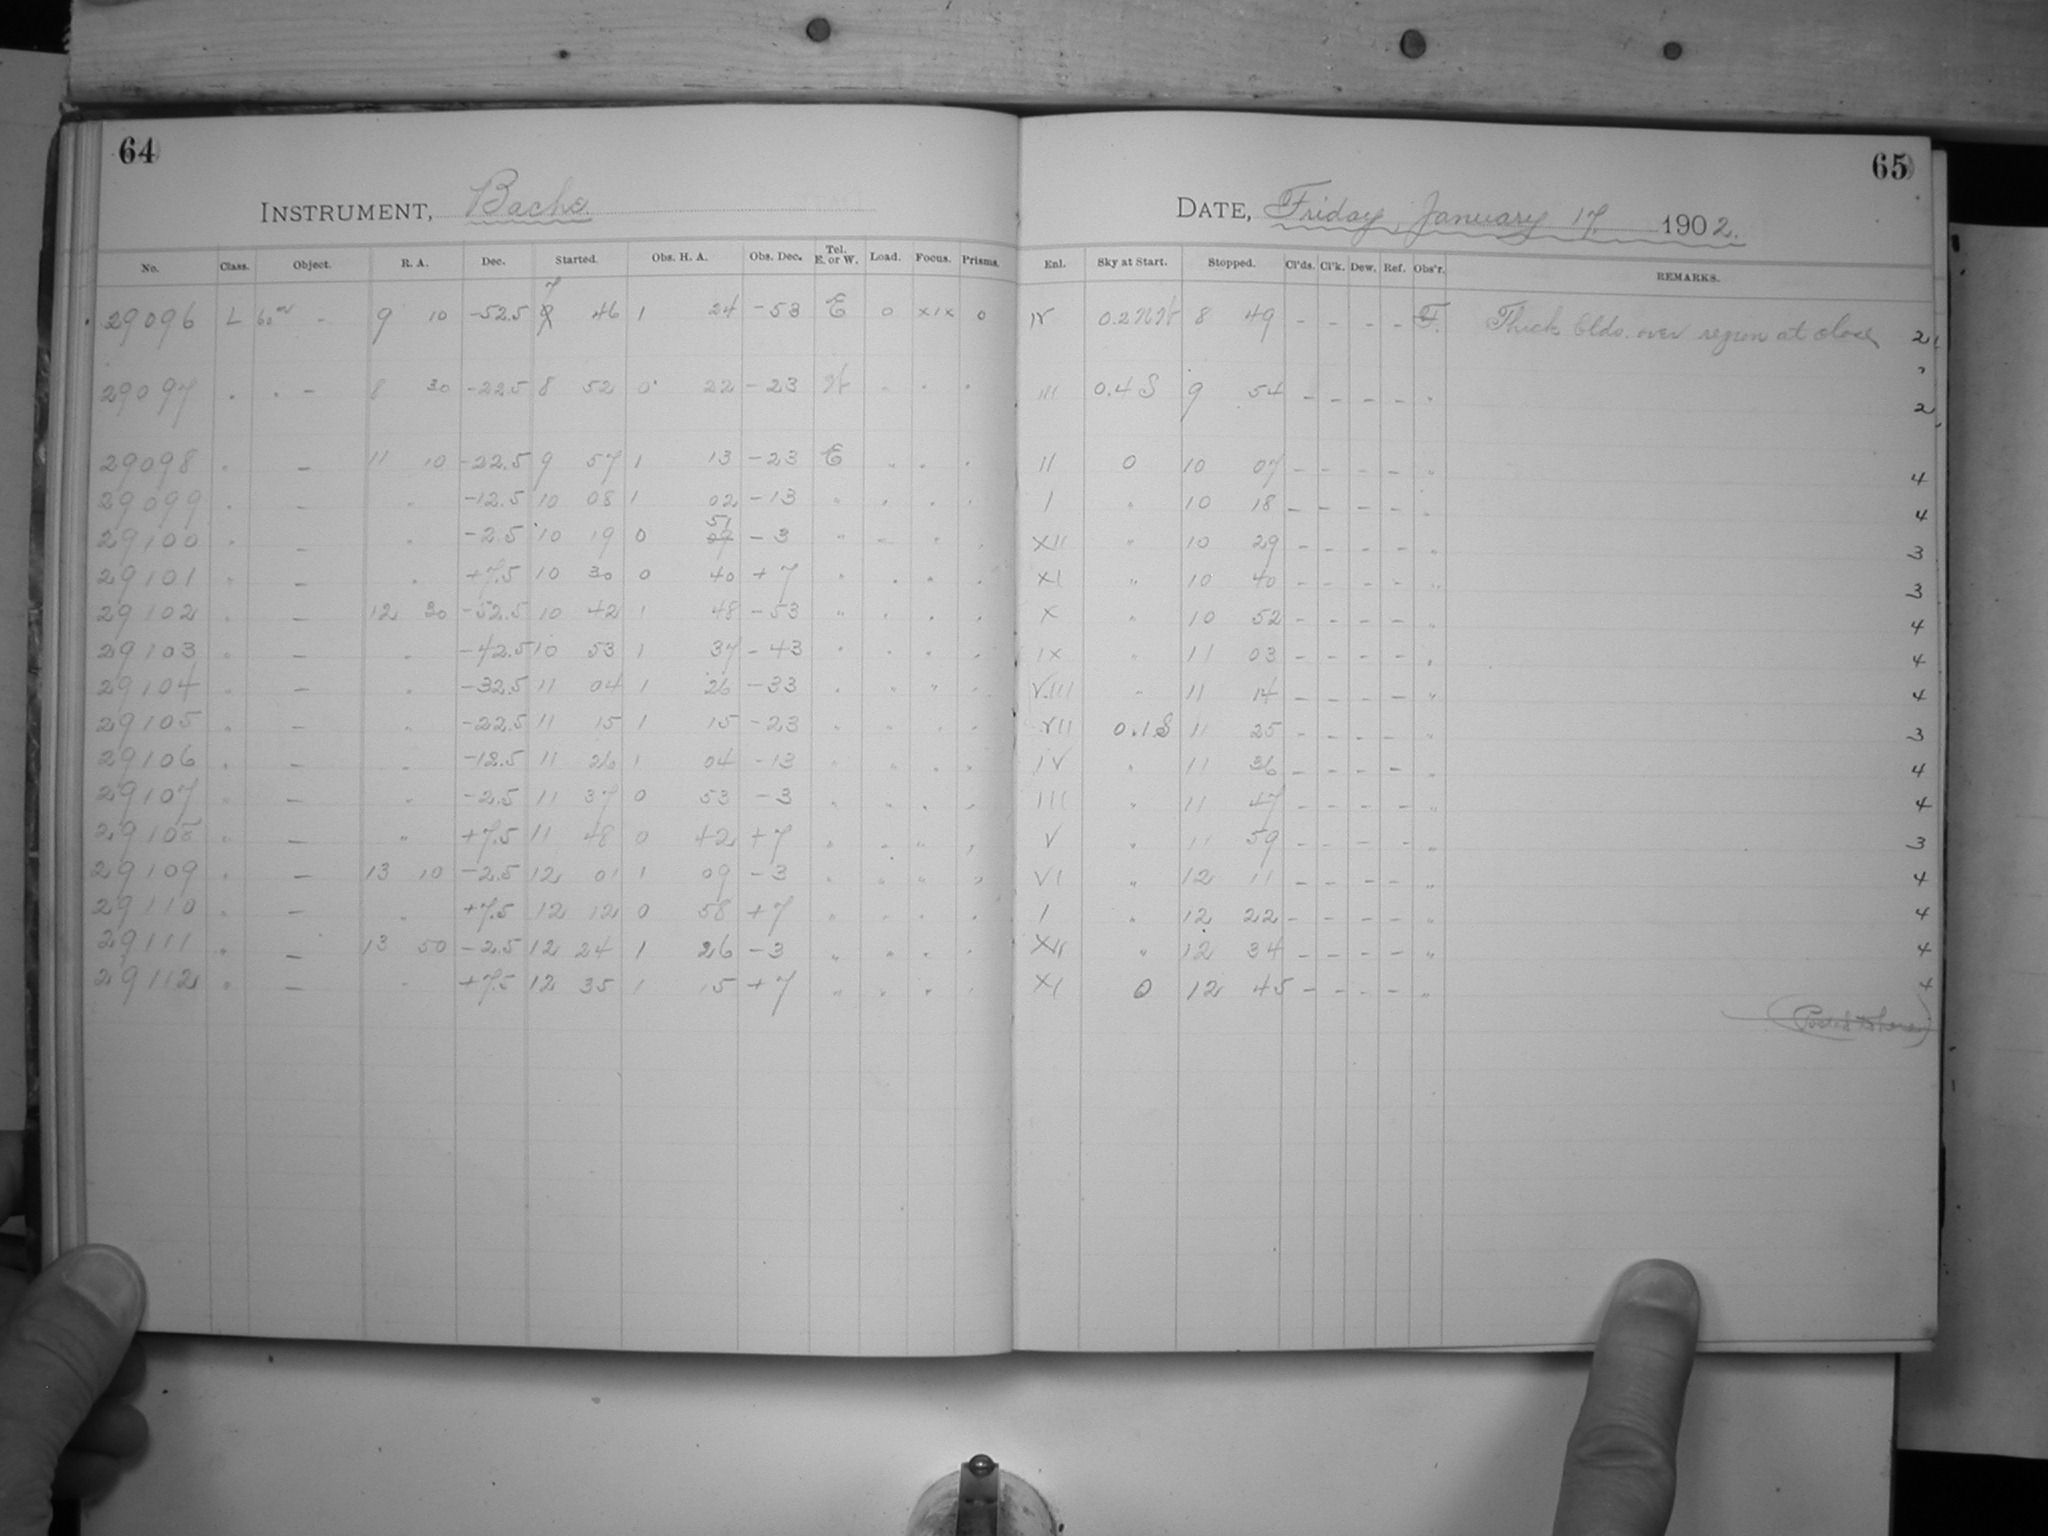 64
65
INSTRUMENT, Bache
DATE, Friday, January 17. 1902.
No. Class. Object. R. A. Dec. Started. Obs. H. A. Obs. Dec. Tel. E. or W. Load. Focus. Prisms. Enl. Sky at Start. Stopped. Cl'ds. Cl'k. Dew. Ref. Obs'r. REMARKS.
29096 L 60m - 9 10 -52.5 7 46 1 24 -53 E 0 XIX 0 IV 0.2 NW 8 49 - - - - F. Thick clds. over region at close 2
29097 " " - 8 30 -22.5 8 52 0 22 -23 W " " " III 0.4 S 9 54 - - - - " 2
29098 " - 11 10 -22.5 9 57 1 13 -23 E " " " II 0 10 07 - - - - " 4
29099 " - " -12.5 10 08 1 02 -13 " " " " I " 10 18 - - - - " 4
29100 " - " -2.5 10 19 0 51 -3 " " " " XII " 10 29 - - - - " 3
29101 " - " +7.5 10 30 0 40 +7 " " " " XI " 10 40 - - - - " 3
29102 " - 12 30 -52.5 10 42 1 48 -53 " " " " X " 10 52 - - - - " 4
29103 " - " -42.5 10 53 1 37 -43 " " " " IX " 11 03 - - - - " 4
29104 " - " -32.5 11 04 1 26 -33 " " " " VIII " 11 14 - - - - " 4
29105 " - " -22.5 11 15 1 15 -23 " " " " VII 0.1 S 11 25 - - - - " 3
29106 " - " -12.5 11 26 1 04 -13 " " " " IV " 11 36 - - - - " 4
29107 " - " -2.5 11 37 0 53 -3 " " " " III " 11 47 - - - - " 4
29108 " - " +7.5 11 48 0 42 +7 " " " " V " 11 59 - - - - " 3
29109 " - 13 10 -2.5 12 01 1 09 -3 " " " " VI " 12 11 - - - - " 4
29110 " - " +7.5 12 12 0 58 +7 " " " " I " 12 22 - - - - " 4
29111 " - 13 50 -2.5 12 24 1 26 -3 " " " " XII " 12 34 - - - - " 4
29112 " - " +7.5 12 35 1 15 +7 " " " " XI 0 12 45 - - - - " 4